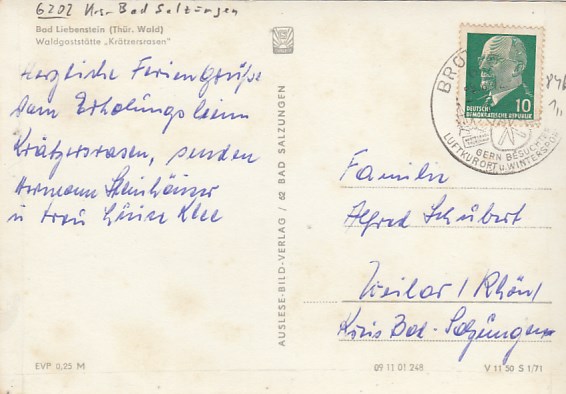 6202 Krs. Bad Salzungen
Bad Liebenstein (Thür. Wald)
Waldgaststätte „Krätzersrasen"
Herzliche Feriengrüße
vom Erholungsheim
Krätzersrasen, senden
Hermann Steinhäuser
u Frau
AUSLESE-BILD-VERLAG / 62 BAD SALZUNGEN
10
DEUTSCHE
DEMOKRATISCHE REPUBLIK
BRO
GERN BESUCHTER
LUFTKURORT U. WINTERSPORT
Familie
Alfred Schubert
Weilar / Rhön
Kreis Bad-Salzungen
EVP 0,25 M
09 11 01 248
V 11 50 S 1/71